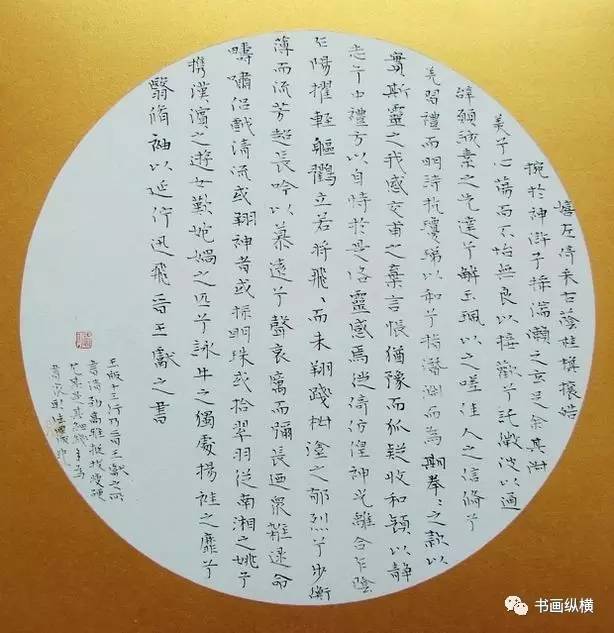 嬉左倚采右蔭桂旗攘皓
捥於神滸兮採湍瀨之玄芝余其淑
美兮心蕩而不怡無良以接歡兮託微波以通
辭願誠素之先達兮解玉珮以之嗟佳人之信脩兮
羌習禮而明詩抗瓊珶以和兮指潛淵而為期拳〻之款以
實斯靈之我感交甫之棄言悵猶豫而狐疑收和顏以靜
志兮申禮方以自持於是洛靈感焉徙倚彷徨神光離合乍陰
乍陽擢輕軀鶴立若將飛〻而未翔踐椒塗之郁烈兮步蘅
薄而流芳超長吟以慕遠兮聲哀厲而彌長迺眾雜遝命
疇嘯侶戲清流或翔神渚或採明珠或拾翠羽從南湘之姚兮
攜漢濱之遊女歎媧之匹兮詠牛之獨處揚袿之靡兮
翳脩袖以延佇迅飛晉王獻之書
玉版十三行乃晉王獻之所
書清勁高雅挺拔瘦硬
书画纵横